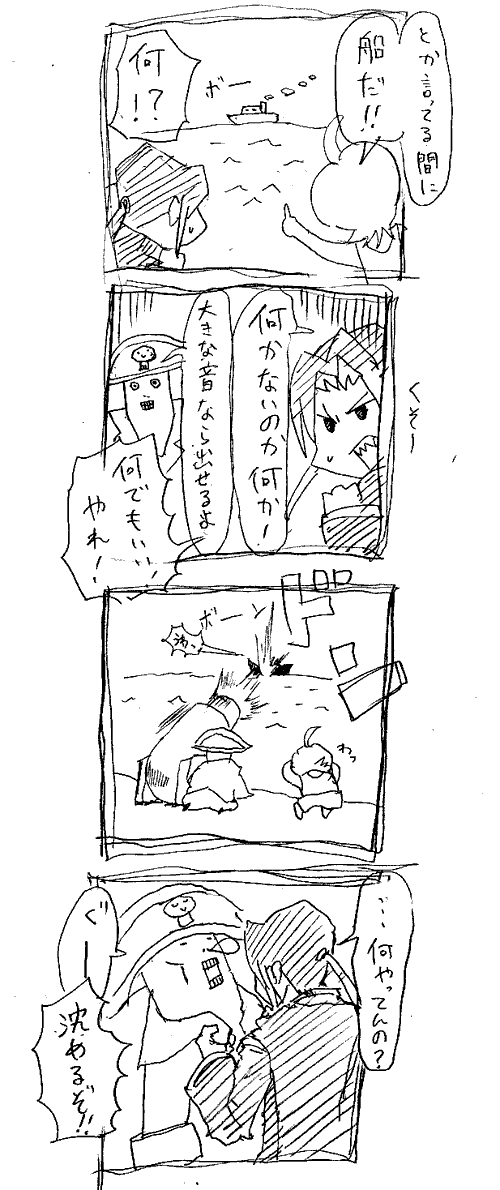 とか言ってる間に
船だ!!
ボー
何!?
くそー
何かないのか何か!
大きな音なら出せるよ
何でもいい!
やれ!
ドゴ
ボーン
わっ
…何やってんの?
ぐー
沈めるぞ!!